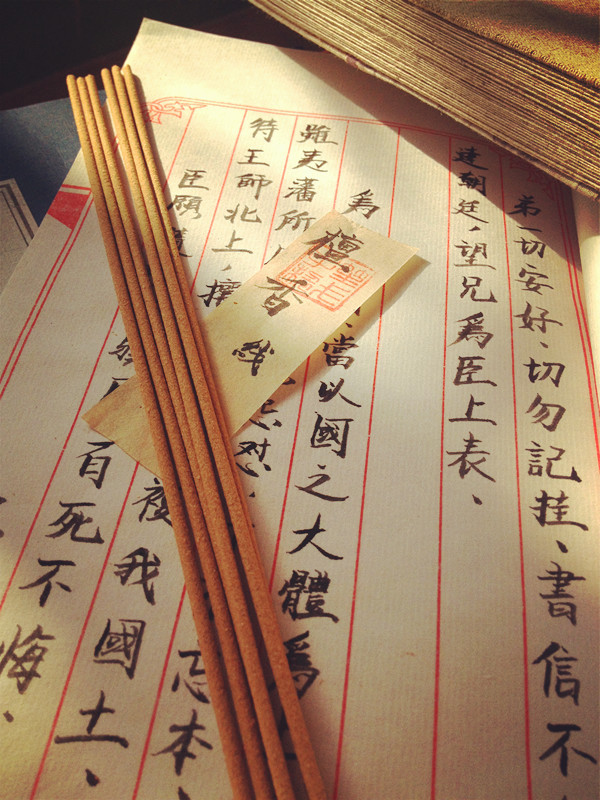 弟一切安好、切勿記挂、書信不
達朝廷，望兄爲臣上表、
爲
當以國之大體爲
雖夷藩所
待王師北上，
忘本、
臣願
我國土、
百死不悔、
檀香